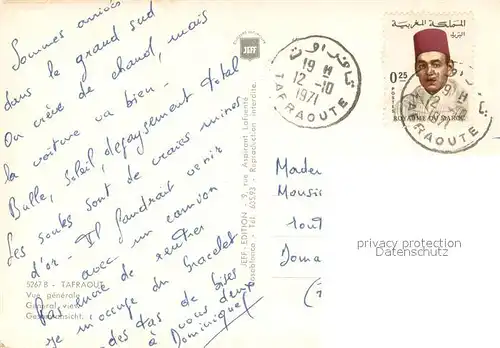 Sommes arrivés
dans le grand sud
On crève de chaud, mais
la voiture va bien -
Bulle, Soleil, dépaysement total
Les souks sont de vraies mines
d'or - Il faudrait venir
avec un camion
Pas envie de rentrer
Je m'occupe du bracelet
des tas de bises
à vous deux
Dominique
5267 B - TAFRAOUT
Vue générale
General view
Gesamtansicht.
JEFF
JEFF - EDITION - 9, rue Aspirant Lafuente
Casablanca - Tél. 655.93 - Reproduction interdite.
تافراوت
19 H
12 -10
1971
TAFRAOUTE
المملكة المغربية
البريد
0.25
POSTES
ROYAUME DU MAROC
19 H
12
71
TAFRAOUTE
Madem
Monsie
Tout
Doma
privacy protection
Datenschutz